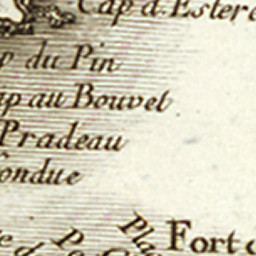 Cap d. Estere
p du Pin
ap au Bouvet
Pradeau
ondue
Fort